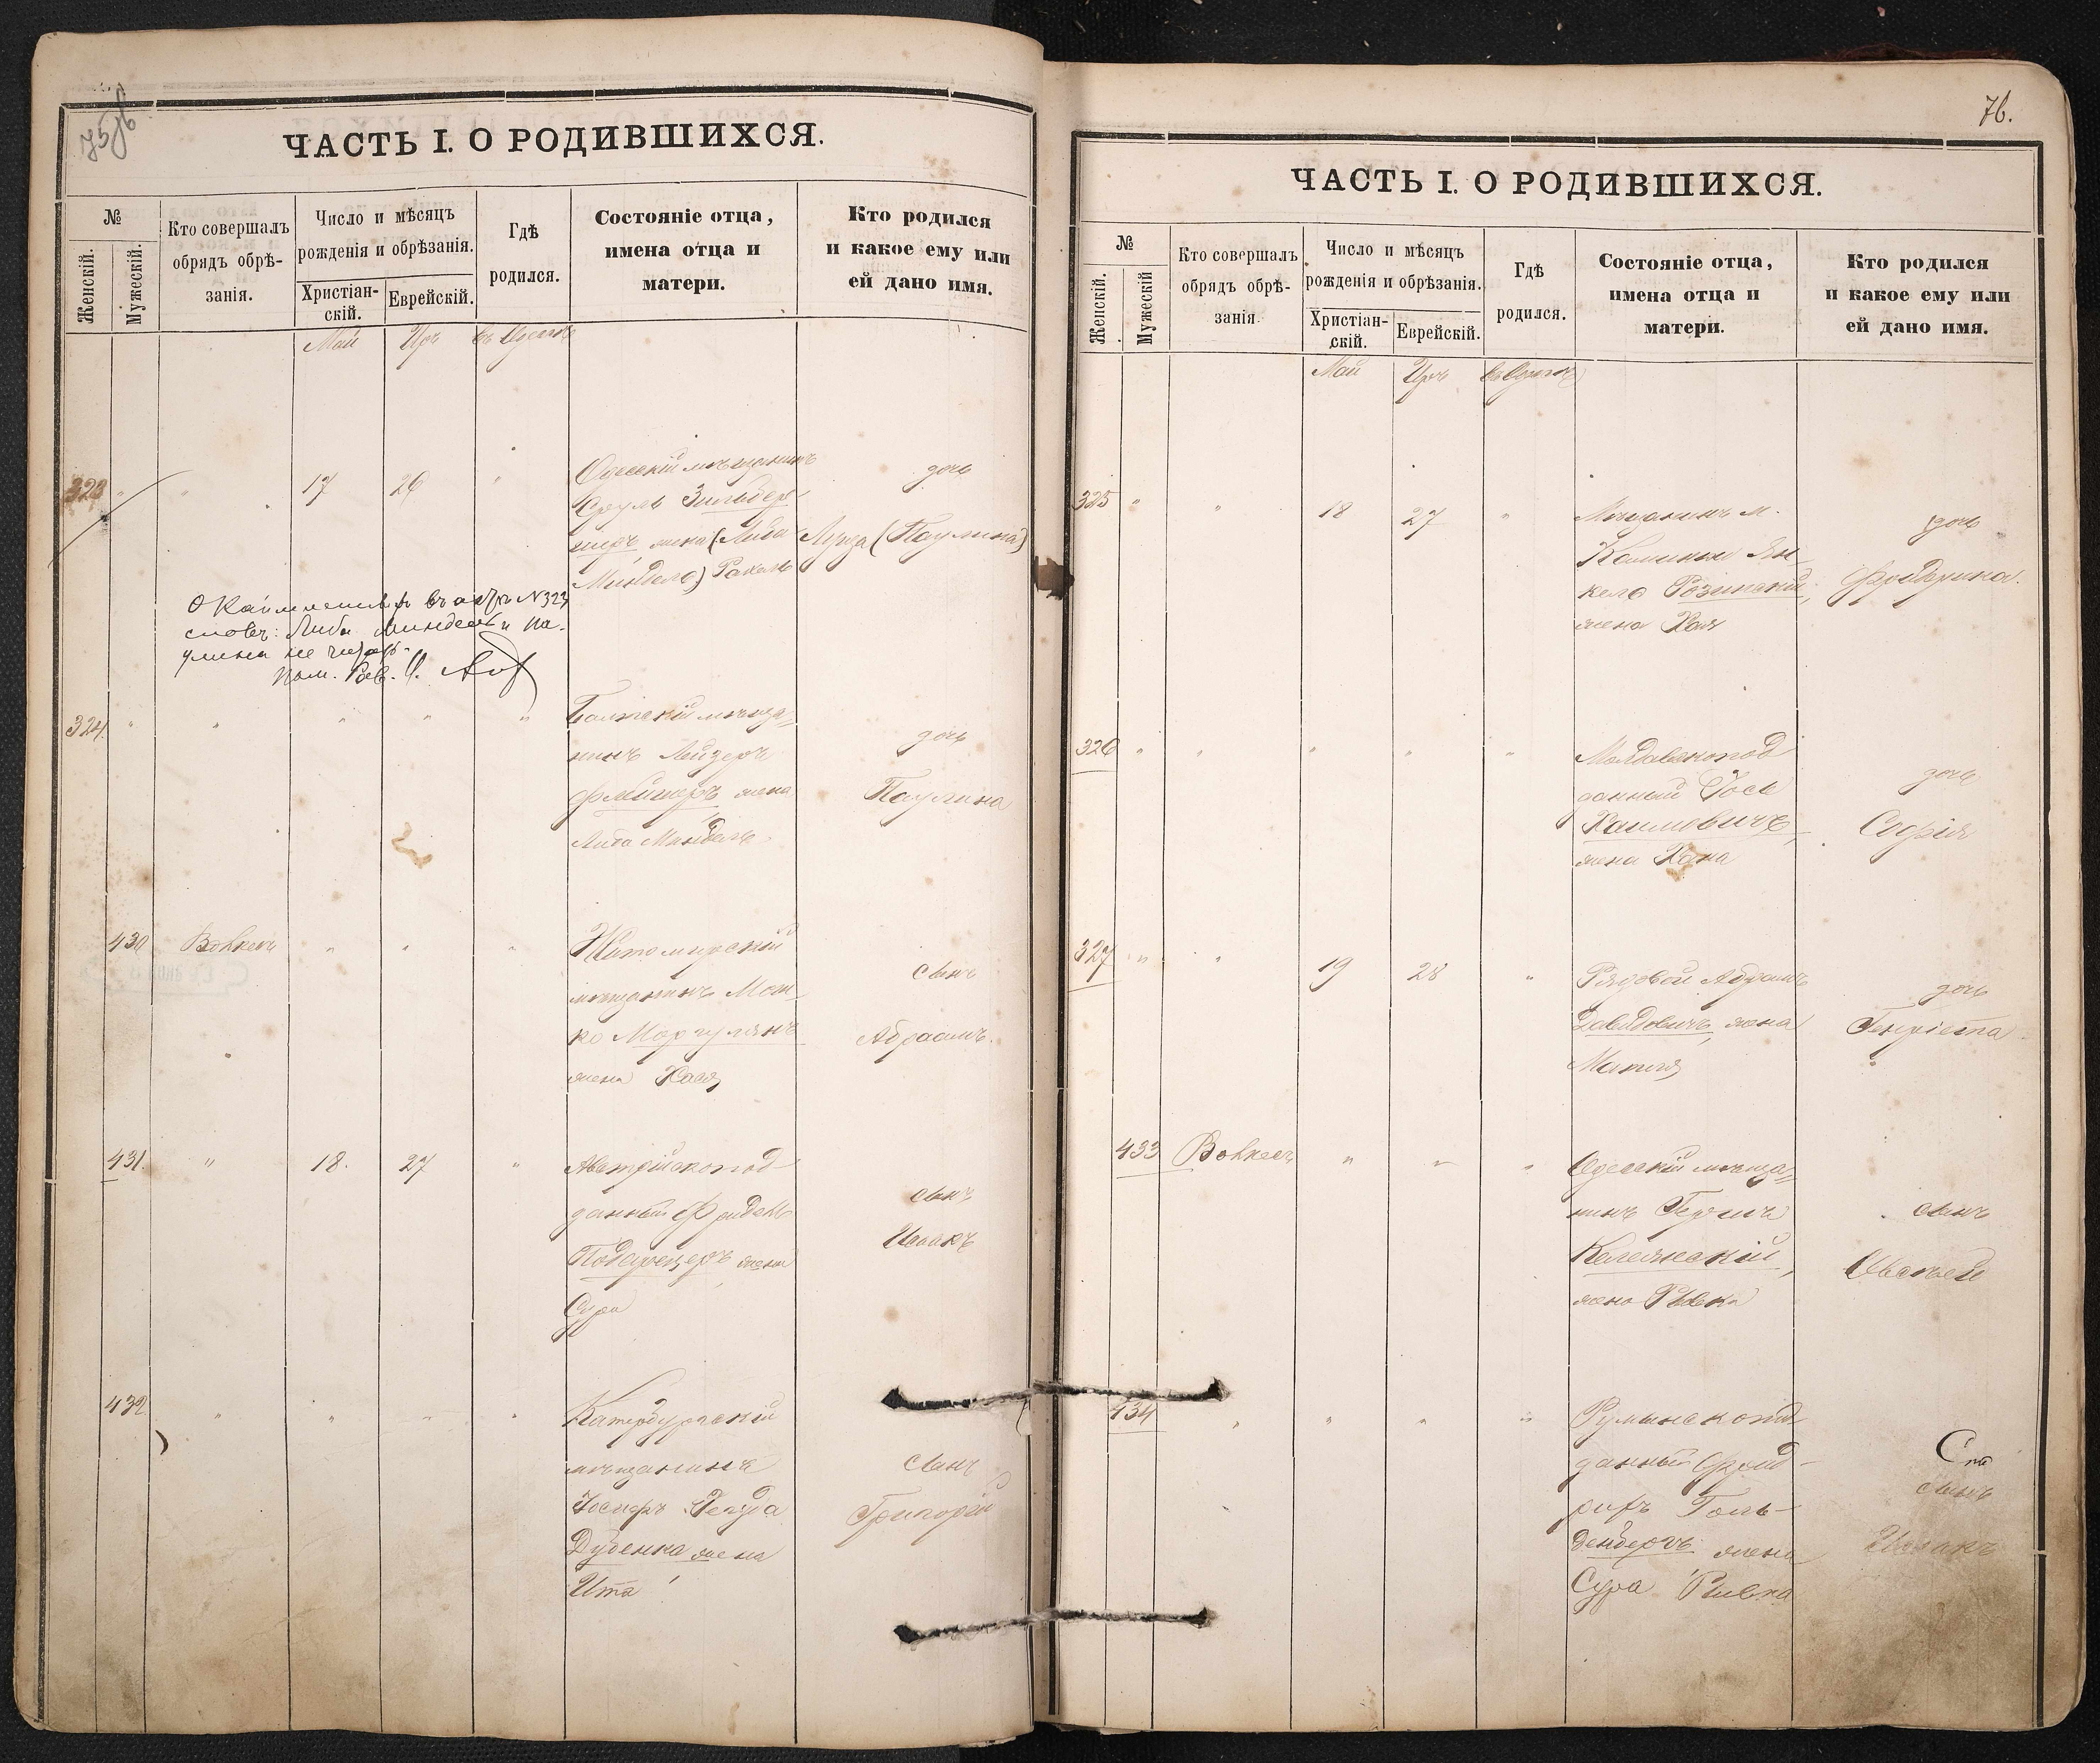 75об
ЧАСТЬ I. О РОДИВШИХСЯ.
№
Женскій.
Мужескій.
Кто совершалъ
обрядъ обрѣ-
занія.
Число и мѣсяцъ
рожденія и обрѣзанія.
Христіан-
скій.
Еврейскій.
Гдѣ
родился.
Состояніе отца,
имена отца и
матери.
Кто родился
и какое ему или
ей дано имя.
Май Иръ въ Одессѣ
323 " " 17 26 "
Одесскій мѣщанинъ
Сруль Зильбер-
жена (Либа
Миндель) Рахель
дочь
(Паулина)
въ актѣ № 323
словъ: Либа Миндель и Па-
улина не читать.
Пом. Рав.
324 " " " " "
Балтскій мѣща-
нинъ Лейзеръ
Флейшеръ, жена
Либа Миндель
дочь
Паулина
430 Вовкесъ " " "
Житомирскій
мѣщанинъ Мош-
ко Моргулянъ
жена Хася
сынъ
Абраамъ.
431. " 18. 27 "
Австрійскопод-
данный Фридель
Подгорецеръ, жена
Сура
сынъ
Исаакъ
432 " " " "
Катербургскій
мѣщанинъ
Іосифъ
Дубенка, жена
Ита
сынъ
Григорій
76.
ЧАСТЬ I. О РОДИВШИХСЯ.
№
Женскій.
Мужескій
Кто совершалъ
обрядъ обрѣ-
занія
Число и мѣсяцъ
рожденія и обрѣзанія.
Христіан-
скій.
Еврейскій.
Гдѣ
родился.
Состояніе отца,
имена отца и
матери.
Кто родился
и какое ему или
ей дано имя.
Май Иръ въ Одессѣ
325 " " 18 27 "
Мѣщанинъ м.
Каминки Ян-
кель Розинскій,
жена Хая
дочь
Фридерика.
326 " " " " "
Молдавскопод
данный Іось
Хаимовичъ,
жена Хана
дочь
Софія
327 " " 19 28 "
Рядовой Абрамъ
Давидовичъ, жена
Матля
дочь
Генріета
433 Вовкесъ " " "
Одесскій мѣща-
нинъ Гершъ
жена Ривка
сынъ
Овсѣей
434 " " " "
Румынскопод
данный Фрид-
рихъ Голь-
денбергъ, жена
Сура Ривка
сынъ
Исаакъ